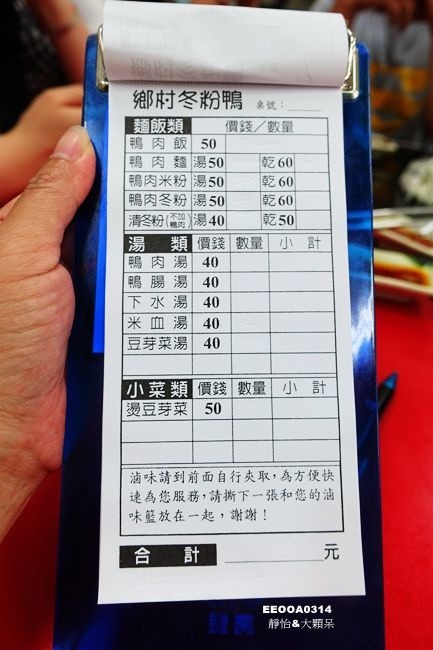 鄉村冬粉鴨 桌號：
麵飯類 價錢／數量
鴨肉飯 50
鴨肉麵 湯50 乾60
鴨肉米粉 湯50 乾60
鴨肉冬粉 湯50 乾60
清冬粉(不加鴨肉) 湯40 乾50
湯類 價錢 數量 小計
鴨肉湯 40
鴨腸湯 40
下水湯 40
米血湯 40
豆芽菜湯 40
小菜類 價錢 數量 小計
燙豆芽菜 50
滷味請到前面自行夾取,為方便快
速為您服務,請撕下一張和您的滷
味籃放在一起,謝謝!
合計 元
EEOOA0314
靜怡&大顆呆